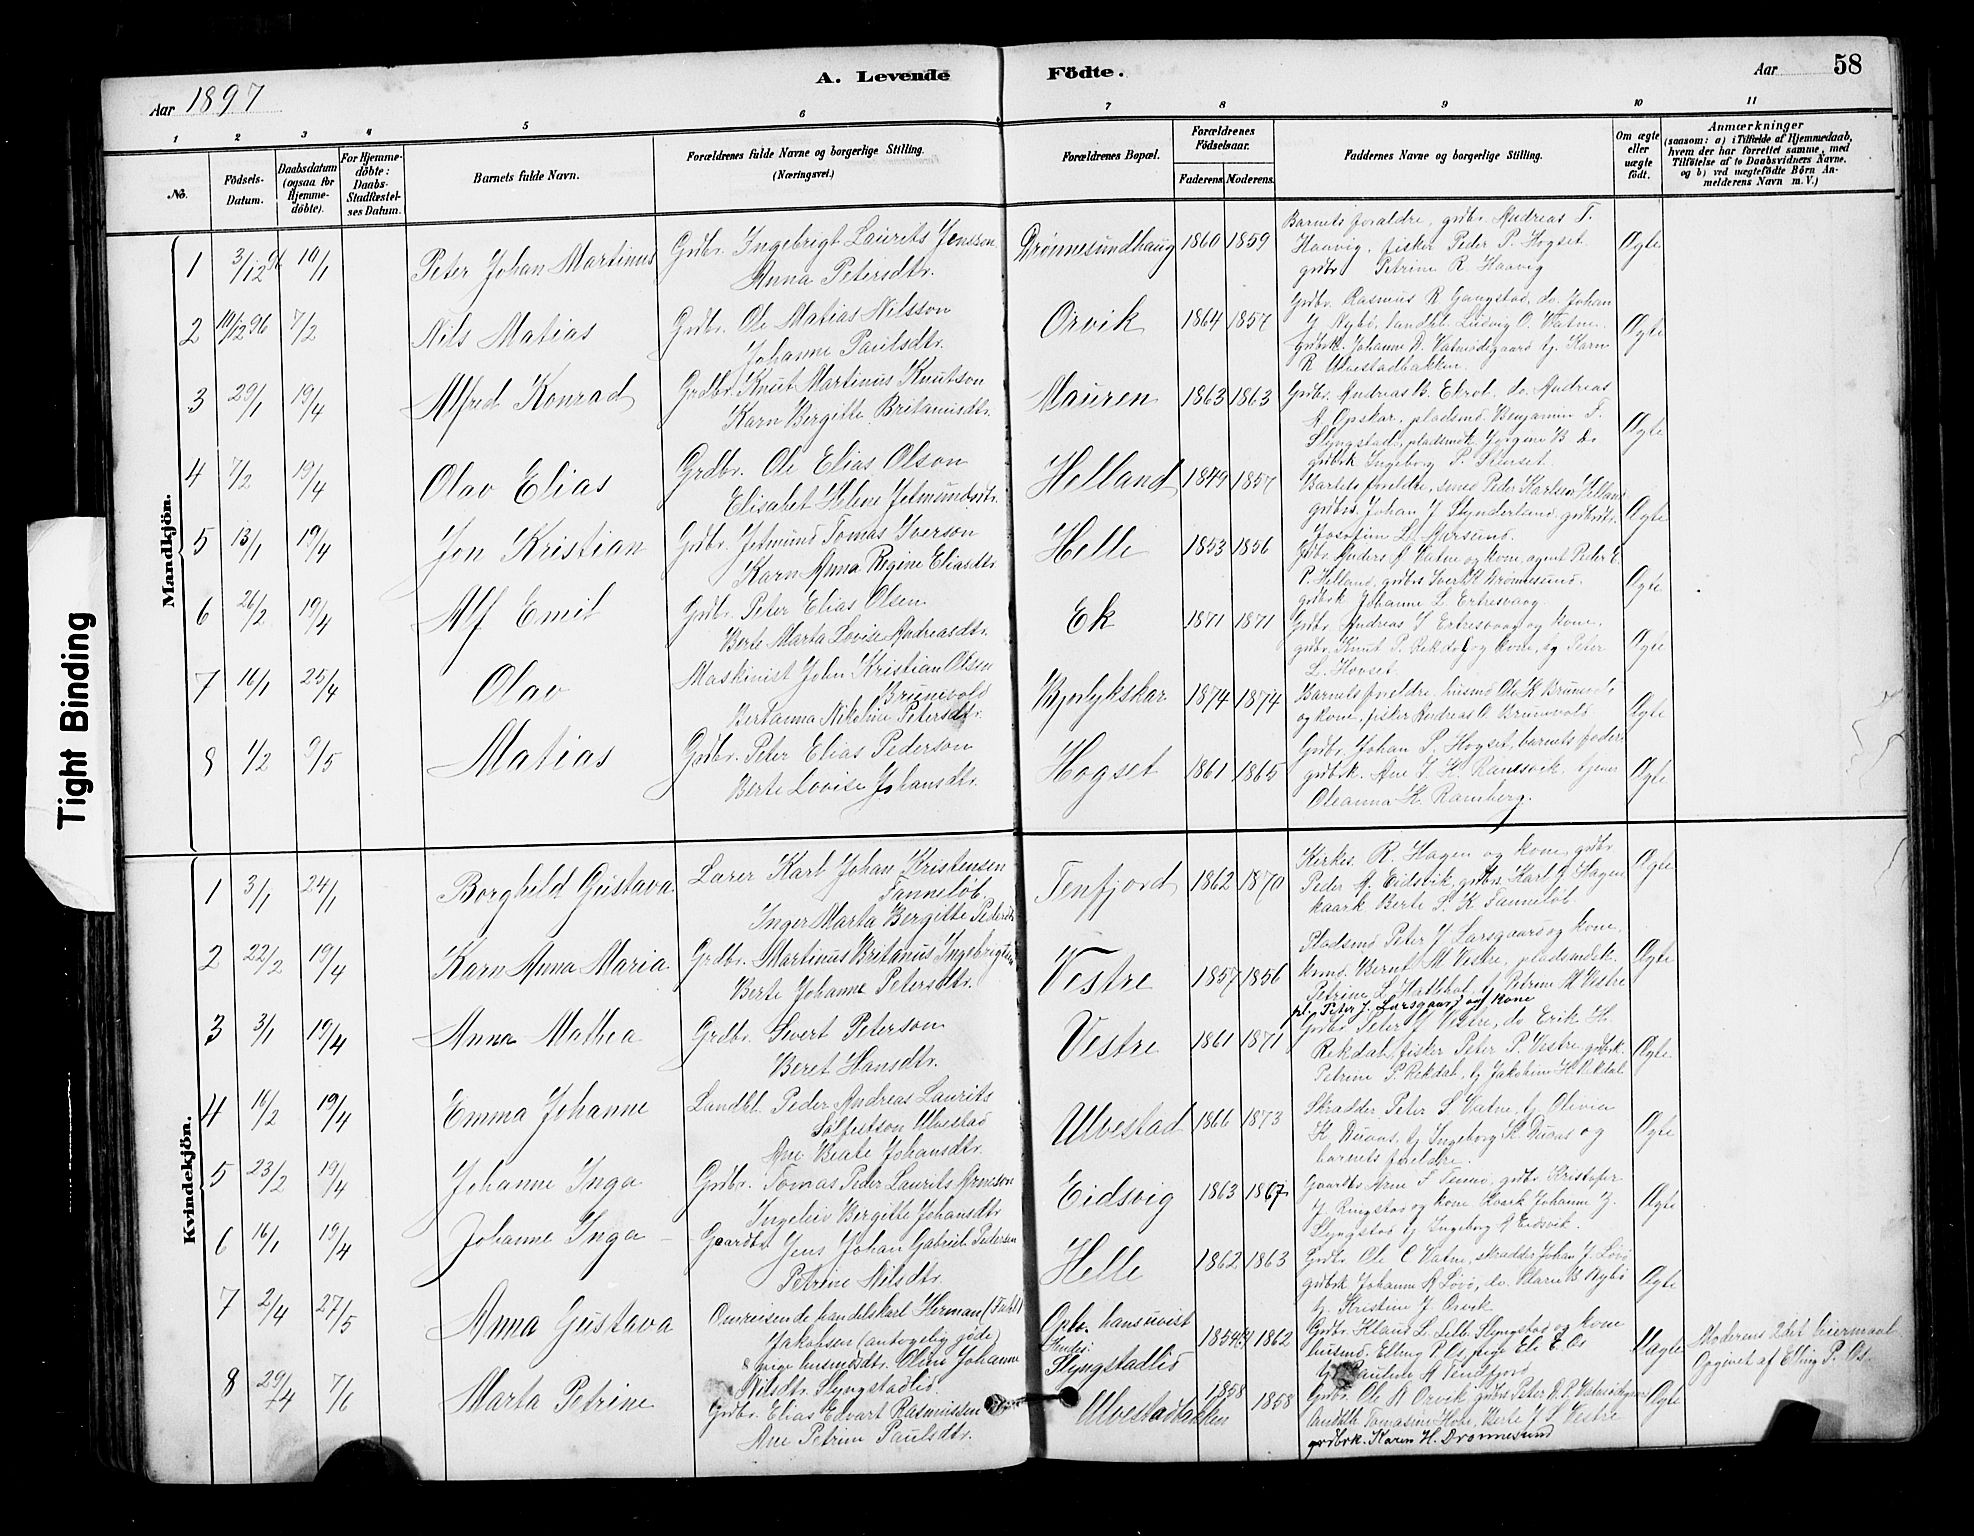 Aar 1897
A. Levende Födte.
Aar 58
1 2 3 4 5 6 7 8 9 10 11
No.
Födsels-Datum.
Daabsdatum (ogsaa for Hjemme-döbte).
For Hjemme-döbte: Daabs-Stadfæstel-ses Datum.
Barnets fulde Navn.
Forældrenes fulde Navne og borgerlige Stilling. (Næringsvei.)
Forældrenes Bopæl.
Forældrenes Födselsaar.
Faderens. Moderens.
Faddernes Navne og borgerlige Stilling.
Om ægte eller uægte födt.
Anmærkninger
(saasom: a) i Tilfælde af Hjemmedaab,
hvem der har forrettet samme, med
Tilföielse af to Daabsvidners Navne.
og b) ved uægtefödte Börn An-
melderens Navn m. V.)
Mandkjön.
1 3/12 96 10/1 Peter Johan Martinus Grdbr. Ingebrigt Laurits Jensson Drönnesundhaug 1860 1859 Barnets foraldre, grdbr. Andreas T. Ægte
Anna Petersdtr. Haavig, fisker Peder P. Hogset
grdbr Petrine R. Haavig
2 10/12 96 7/2 Nils Matias Grdbr. Ole Matias Nilsson Orvik 1864 1857 Grdbr. Rasmus R Gangstad, do. Johan Ægte
Johanne Paulsdtr. J. Nybö, landhl. Ludvig O. Vatne
Johanne R. Vatneödegaard tj. Karn
R. Ulvestadbakken
3 29/1 19/4 Alfred Konrad Grdbr. Knut Martinus Knutson Mauren 1863 1863 Grdbr. Andreas B. do. Andreas Ægte
Karn Bergitte Britanusdtr. A Opskar, pladsmd. Benjamin T.
Slyngstad, pladsmdk
grdbrk Ingeborg P.
4 7/2 19/4 Olav Elias Grdbr. Ole Elias Olson Helland 1849 1857 foreldre, Peder Karlsen Helland Ægte
Elisabet Helene Jetmundsdtr. grdbr. Johan J
Josefine L.
5 13/1 19/4 Jon Kristian Grdbr. Jetmund Tomas Iverson Helle 1853 1856 Grdbr. Anders A Vatne og kone, agent Peder E Ægte
Karn Anna Regine Eliasdtr. P. Helland, grdbr Drönnesund,
grdbrk Johanne L. Ertresvaag
6 26/2 19/4 Alf Emil Grdbr. Peter Elias Olsen Ek 1871 1871 Grdbr. Andreas J Ertresvaag og kone, Ægte
Berte Marta Lovise Andreasdtr. grdbr. Knut P. Rekdal og kone, og Peter
L. Hovset
7 16/1 25/4 Olav Maskinist John Kristian Olsen Bjorlykskar 1874 1874 Barnets foreldre, husmd Ole K Brunvol, Ægte
Brunvold og kone, fisker Andreas O Brunvold
Bertanna Nikoline Petersdtr.
8 1/2 9/5 Matias Grdbr. Peter Elias Pederson Hogset 1861 1865 Grdbr. Johan P. Hogset, barnets fader Ægte
Berte Lovise Johansdtr. grdbrk. Ane J. K. tjener
Oleanna K. Ramberg.
Kvindekjön.
1 3/1 24/1 Borghild Gustava Larer Karl Johan Kristensen Tenfjord 1862 1870 Kirkes. R. Hagen og kone, grdbr Ægte
Fannelöb Peder A. Eidsvik, grdbr. Karl J Hagen
Inger Marta Bergette Pedersdtr kaark Berte S. K Fannelöb
2 22/2 19/4 Karn Anna Maria Grdbr. Martinus Britanus Ingebrigtsen Vestre 1857 1856 Pladsmd Peter J Larsgaard og kone, Ægte
Berte Johanne Petersdtr. Bernt M Vestre, pladsmdk.
Petrine L. tj Petrine M Vestre
pl. Peter J. Larsgaard og kone
3 3/1 19/4 Anna Mathea Grdbr. Sivert Peterson Vestre 1861 1871 Grdbr Peter J Vestre, do Erik H. Ægte
Beret Hansdtr. Rekdal, fisker Peter P. Vestre, grdbrk.
Petrine P. Rekdal, tj Jakobine H Rekdal
4 10/2 19/4 Emma Johanne Landhl. Peder Andreas Laurits Ulvestad 1866 1873 Skradder Peter S. Vatne, tj Olivia Ægte
Solfestson Ulvestad K, tj Ingeborg K og
Ane Beate Johansdtr. barnets foreldre.
5 23/2 19/4 Johanne Inga Grdbr. Tomas Peder Laurits Arneson Eidsvig 1863 1867 Gaardbr Arne F grdbr Kristofer Ægte
Ingeleiv Bergitte Johansdtr J. Ringstad og kone, kaark Johanne J.
Slyngstad, tj Ingeborg A Eidsvik.
6 16/1 19/4 Johanne Inga Gaardbr. Jens Johan Gabriel Petersen Helle 1862 1863 Grdbr Ole C Vatne, skradder Johan J. Lövö Ægte
Petrine Nilsdtr. grdbrk Johanne R Lövö, do. Maren B Nybö
tj. Kristine J Orvik
7 2/4 27/5 Anna Gustava Omreisende handelskarl Herman (Fahl) Oph. hansuvist 1854 1862 Grdbr. Klaus L. Lillb. Slyngstad og kone Uægte Moderens 2det leiermaal
Jakobsen (andgivelig gide) Kindes: husmd. Elling P. Os, pige Ele E Os Opgivet af Elling P. Os.
& pige husmdsdtr. Oline Johanne Slyngstadlid tj Pauline A Tenfjord
Nilsdtr. Slyngstadlid.
8 29/4 7/6 Marta Petrine Grdbr. Elias Edvart Rasmussen Ulvestadbakken 1858 1858 Grdbr. Ole A Orvik, grdbr Peter A. P. Vatneödegaard Ægte
Ane Petrine Paulsdtr. Tomasine Berte J S. Vestre
grdbrk. Karen H. Drönnesund
Tight Binding